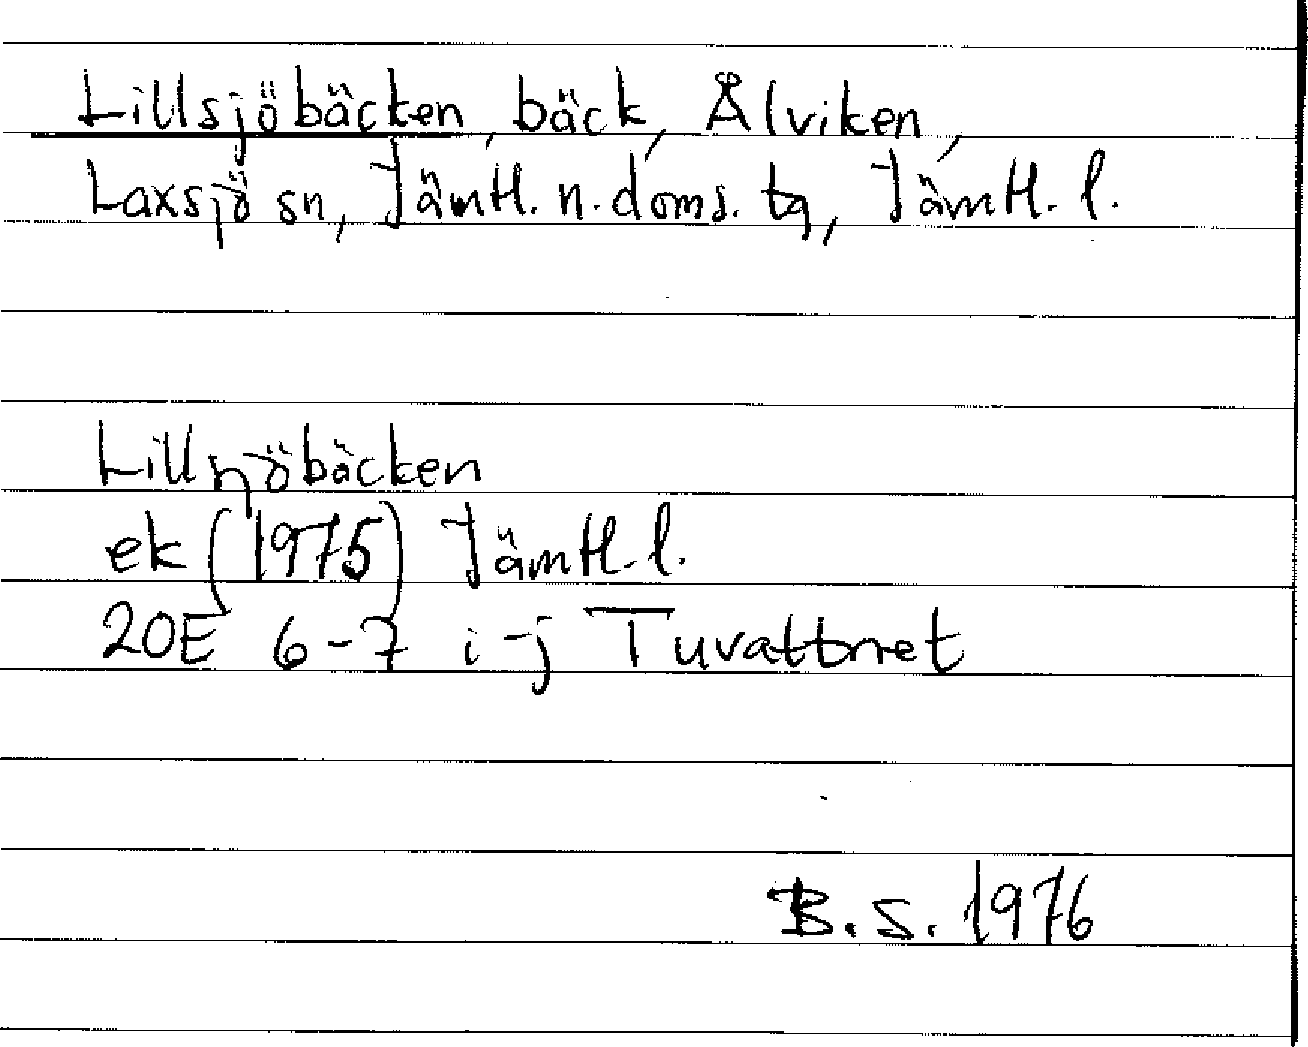 Lillsjöbäcken, bäck, Ålviken,
Laxsjö sn, Jämtl. n. doms. tg, Jämtl. l.
Lillsjöbäcken
ek (1975) Jämtl. l.
20E 6-7 i-j Tuvattnet
B.S. 1976